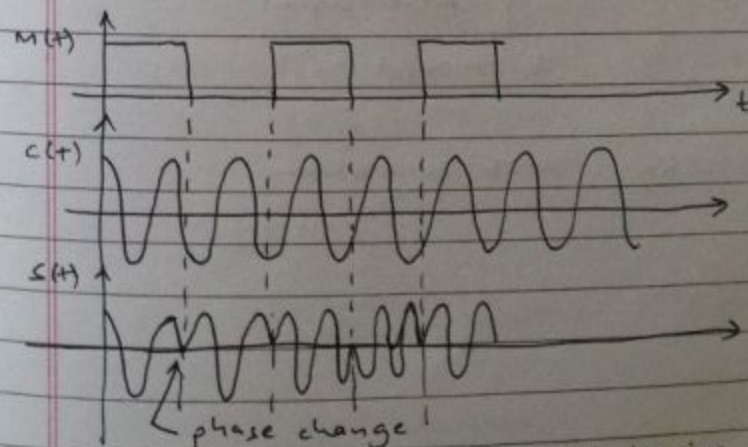 M(t)
t
C(t)
S(t)
phase change